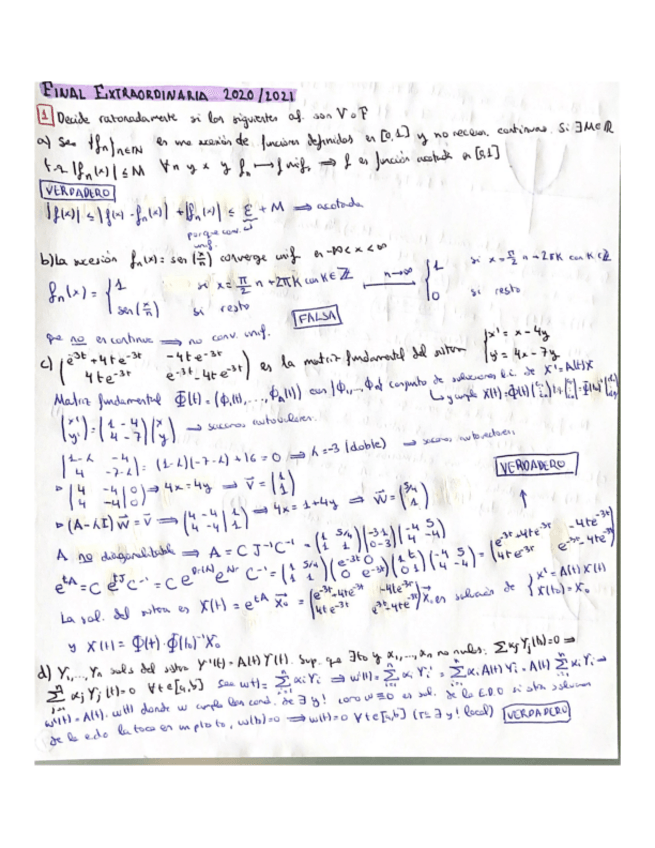 FINAL EXTRAORDINARIA 2020/2021
1 Decide razonadamente si las siguientes af. son V o F
a) Sea {fn}n∈ℕ es una sucesión de funciones definidas en [0,1] y no necesar. continuas. Si ∃M∈ℝ
t.q. |fn(x)| ≤ M ∀n y x y fn → f unif. ⇒ f es función acotada en [0,1]
VERDADERO
|f(x)| ≤ |f(x) - fn(x)| + |fn(x)| ≤ ε + M ⇒ acotada
porque conv.
unif.
b) La sucesión fn(x) = sen(x/n) converge unif en -∞ < x < ∞
fn(x) = { 1 si x = π/2 n + 2πK con K∈ℤ n→∞ { 1 si x = π/2 n + 2πK con K∈ℤ
sen(x/n) si resto 0 si resto
FALSA
que no es continua ⇒ no conv. unif.
c) (e^-3t + 4te^-3t -4te^-3t es la matriz fundamental del sistema { x' = x - 4y
4te^-3t e^-3t - 4te^-3t) y' = 4x - 7y
Matriz fundamental Φ(t) = (φ1(t), ..., φn(t)) con {φ1, ..., φn} conjunto de soluciones l.i. de X' = A(t)X
(x' y') = (1 -4 4 -7)(x y) → sacamos autovalores.
|1-λ -4 4 -7-λ| = (1-λ)(-7-λ) + 16 = 0 ⇒ λ = -3 (doble) ⇒ sacamos autovectores
VERDADERO
▹ (4 -4|0 4 -4|0) ⇒ 4x = 4y ⇒ v = (1 1)
▹ (A-λI)w = v ⇒ (4 -4|1 4 -4|1) ⇒ 4x = 1+4y ⇒ w = (5/4 1)
A no diagonalizable ⇒ A = C J^-1 C^-1 = (1 5/4 1 1)(-3 1 0 -3)(-4 5 4 -4)
e^tA = C e^tJ C^-1 = C e^D e^N C^-1 = (1 5/4 1 1)(e^-3t 0 0 e^-3t)(1 t 0 1)(-4 5 4 -4) = (e^-3t+4te^-3t -4te^-3t 4te^-3t e^-3t-4te^-3t)
La sol. del sistema es X(t) = e^tA X0 = (e^-3t+4te^-3t -4te^-3t 4te^-3t e^-3t-4te^-3t) X0 es solución de { X' = A(t)X(t)
X(t0) = X0
y X(t) = Φ(t)·Φ(t0)^-1 X0
d) Y1, ..., Yn sols del sistema Y'(t) = A(t)Y(t). Sup. que ∃t0 y α1, ..., αn no nulos: Σ αj Yj(t0) = 0 ⇒
Σ αj Yj(t) = 0 ∀t∈[a,b] Sea w(t) = Σ αi Yi ⇒ w'(t) = Σ αi Yi' = Σ αi A(t) Yi = A(t) Σ αi Yi →
w'(t) = A(t)·w(t) donde w cumple las cond. de ∃ y ! como w≡0 es sol. de la EDO si otra solución
de la edo la toca en un pto t0, w(t0) = 0 ⇒ w(t) = 0 ∀t∈[a,b] (T ∃ y ! local) VERDADERO